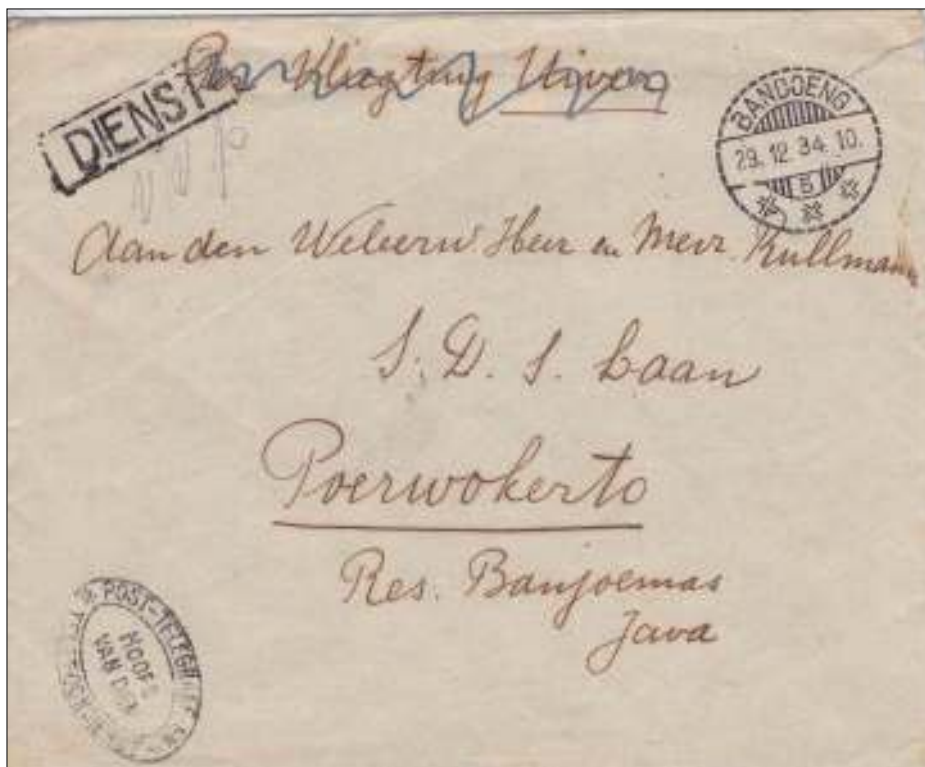 Per Vliegtuig Uiver
DIENST
BANDOENG
29.12.34.10.
5
Aan den Weleerw Heer en Mevr. Kullmann
S. D. S. Laan
Poerwokerto
Res. Banjoemas
Java
POST-TELEGR
HOOFD
VAN DEN